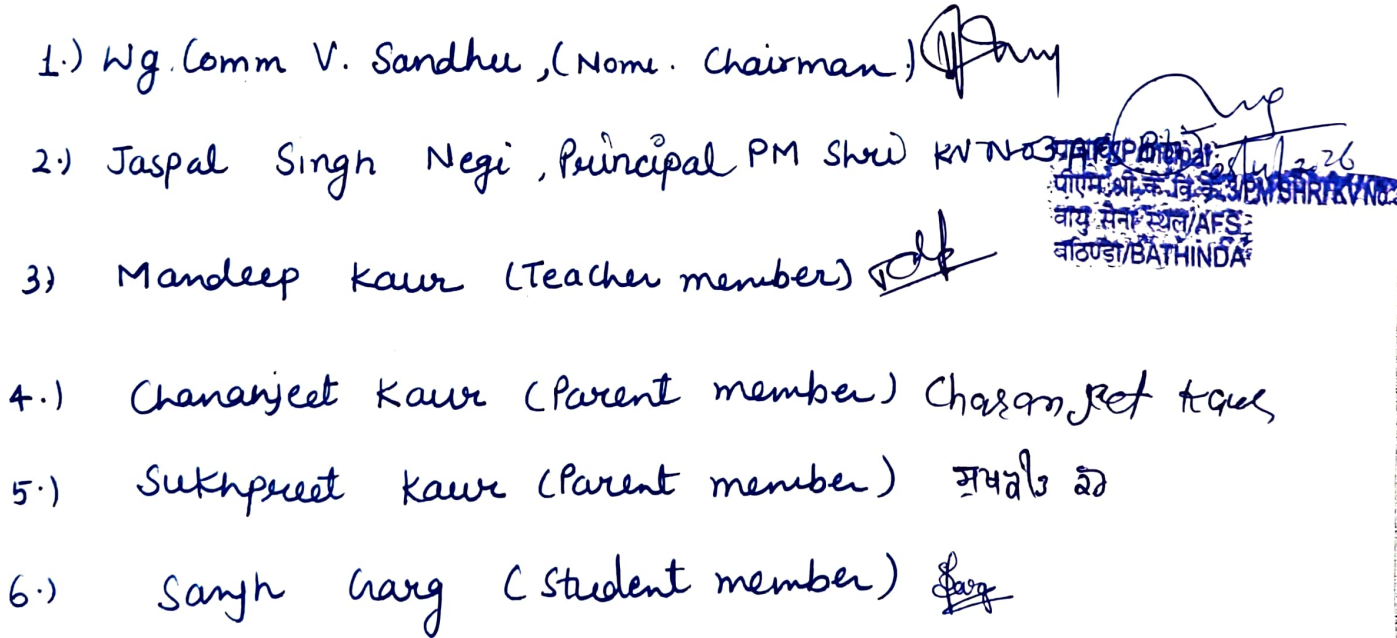 1.) Wg. Comm V. Sandhu, (Nomi. Chairman)
2.) Jaspal Singh Negi, Principal PM Shri KV No3
पीएम श्री के. वि. क्र. 3/PM SHRI KV No.
वायु सेना स्थल/AFS
बठिण्डा/BATHINDA
3) Mandeep Kaur (Teacher member)
4.) Charanjeet Kaur (Parent member) Charanjeet Kaur
5.) Sukhpreet Kaur (Parent member)
6.) Garg (Student member) Garg